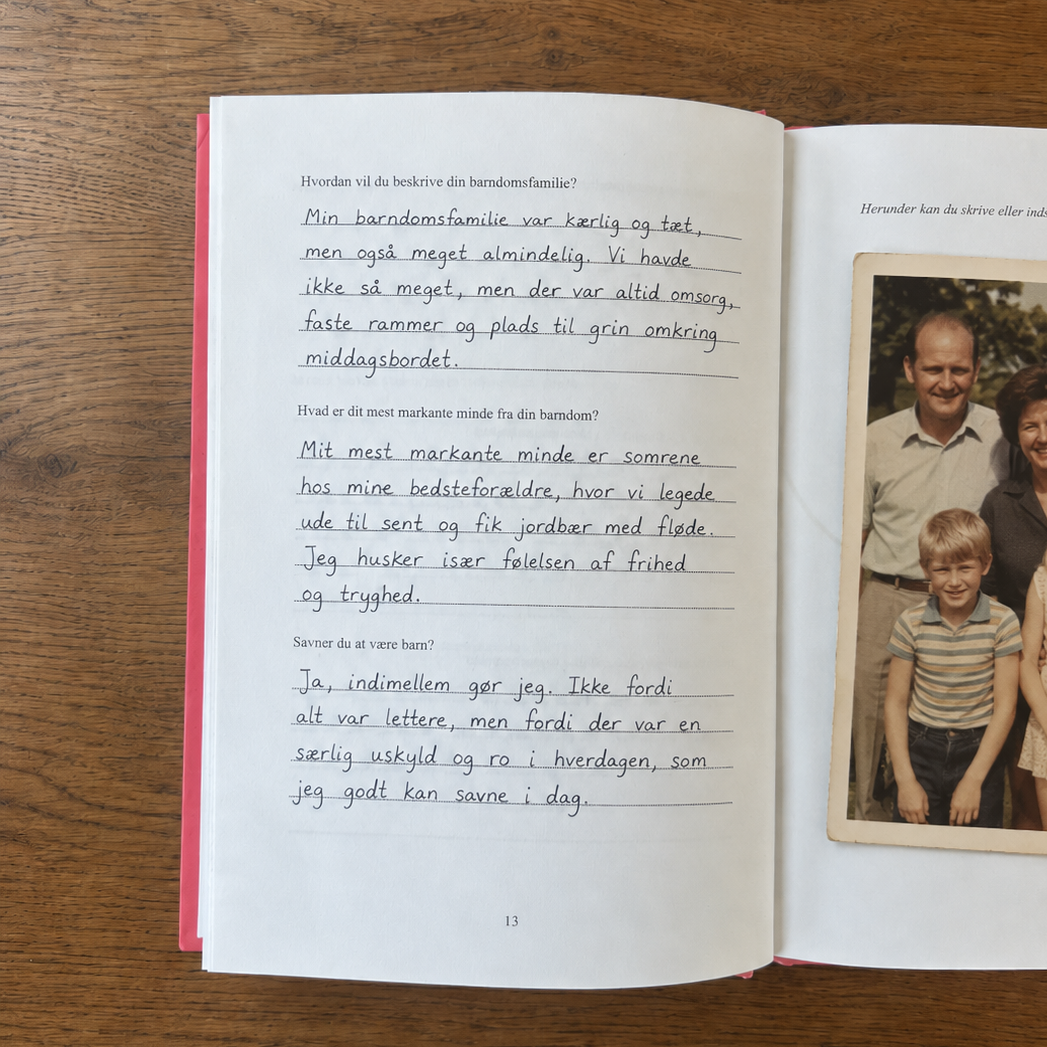 Hvordan vil du beskrive din barndomsfamilie?
Min barndomsfamilie var kærlig og tæt,
men også meget almindelig. Vi havde
ikke så meget, men der var altid omsorg,
faste rammer og plads til grin omkring
middagsbordet.
Hvad er dit mest markante minde fra din barndom?
Mit mest markante minde er somrene
hos mine bedsteforældre, hvor vi legede
ude til sent og fik jordbær med fløde.
Jeg husker især følelsen af frihed
og tryghed.
Savner du at være barn?
Ja, indimellem gør jeg. Ikke fordi
alt var lettere, men fordi der var en
særlig uskyld og ro i hverdagen, som
jeg godt kan savne i dag.
13
Herunder kan du skrive eller